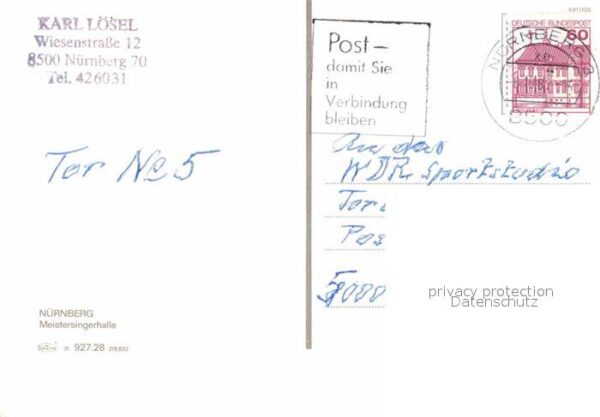 KARL LÖSEL
Wiesenstraße 12
8500 Nürnberg 70
Tel. 426031
Tor No 5
NÜRNBERG
Meistersingerhalle
31 927.28
491000
DEUTSCHE BUNDESPOST
60
NÜRNBERG
8500
Post –
damit Sie
in
Verbindung
bleiben
An das
WDR Sportstudio
Tor
Pos
5000
privacy protection
Datenschutz